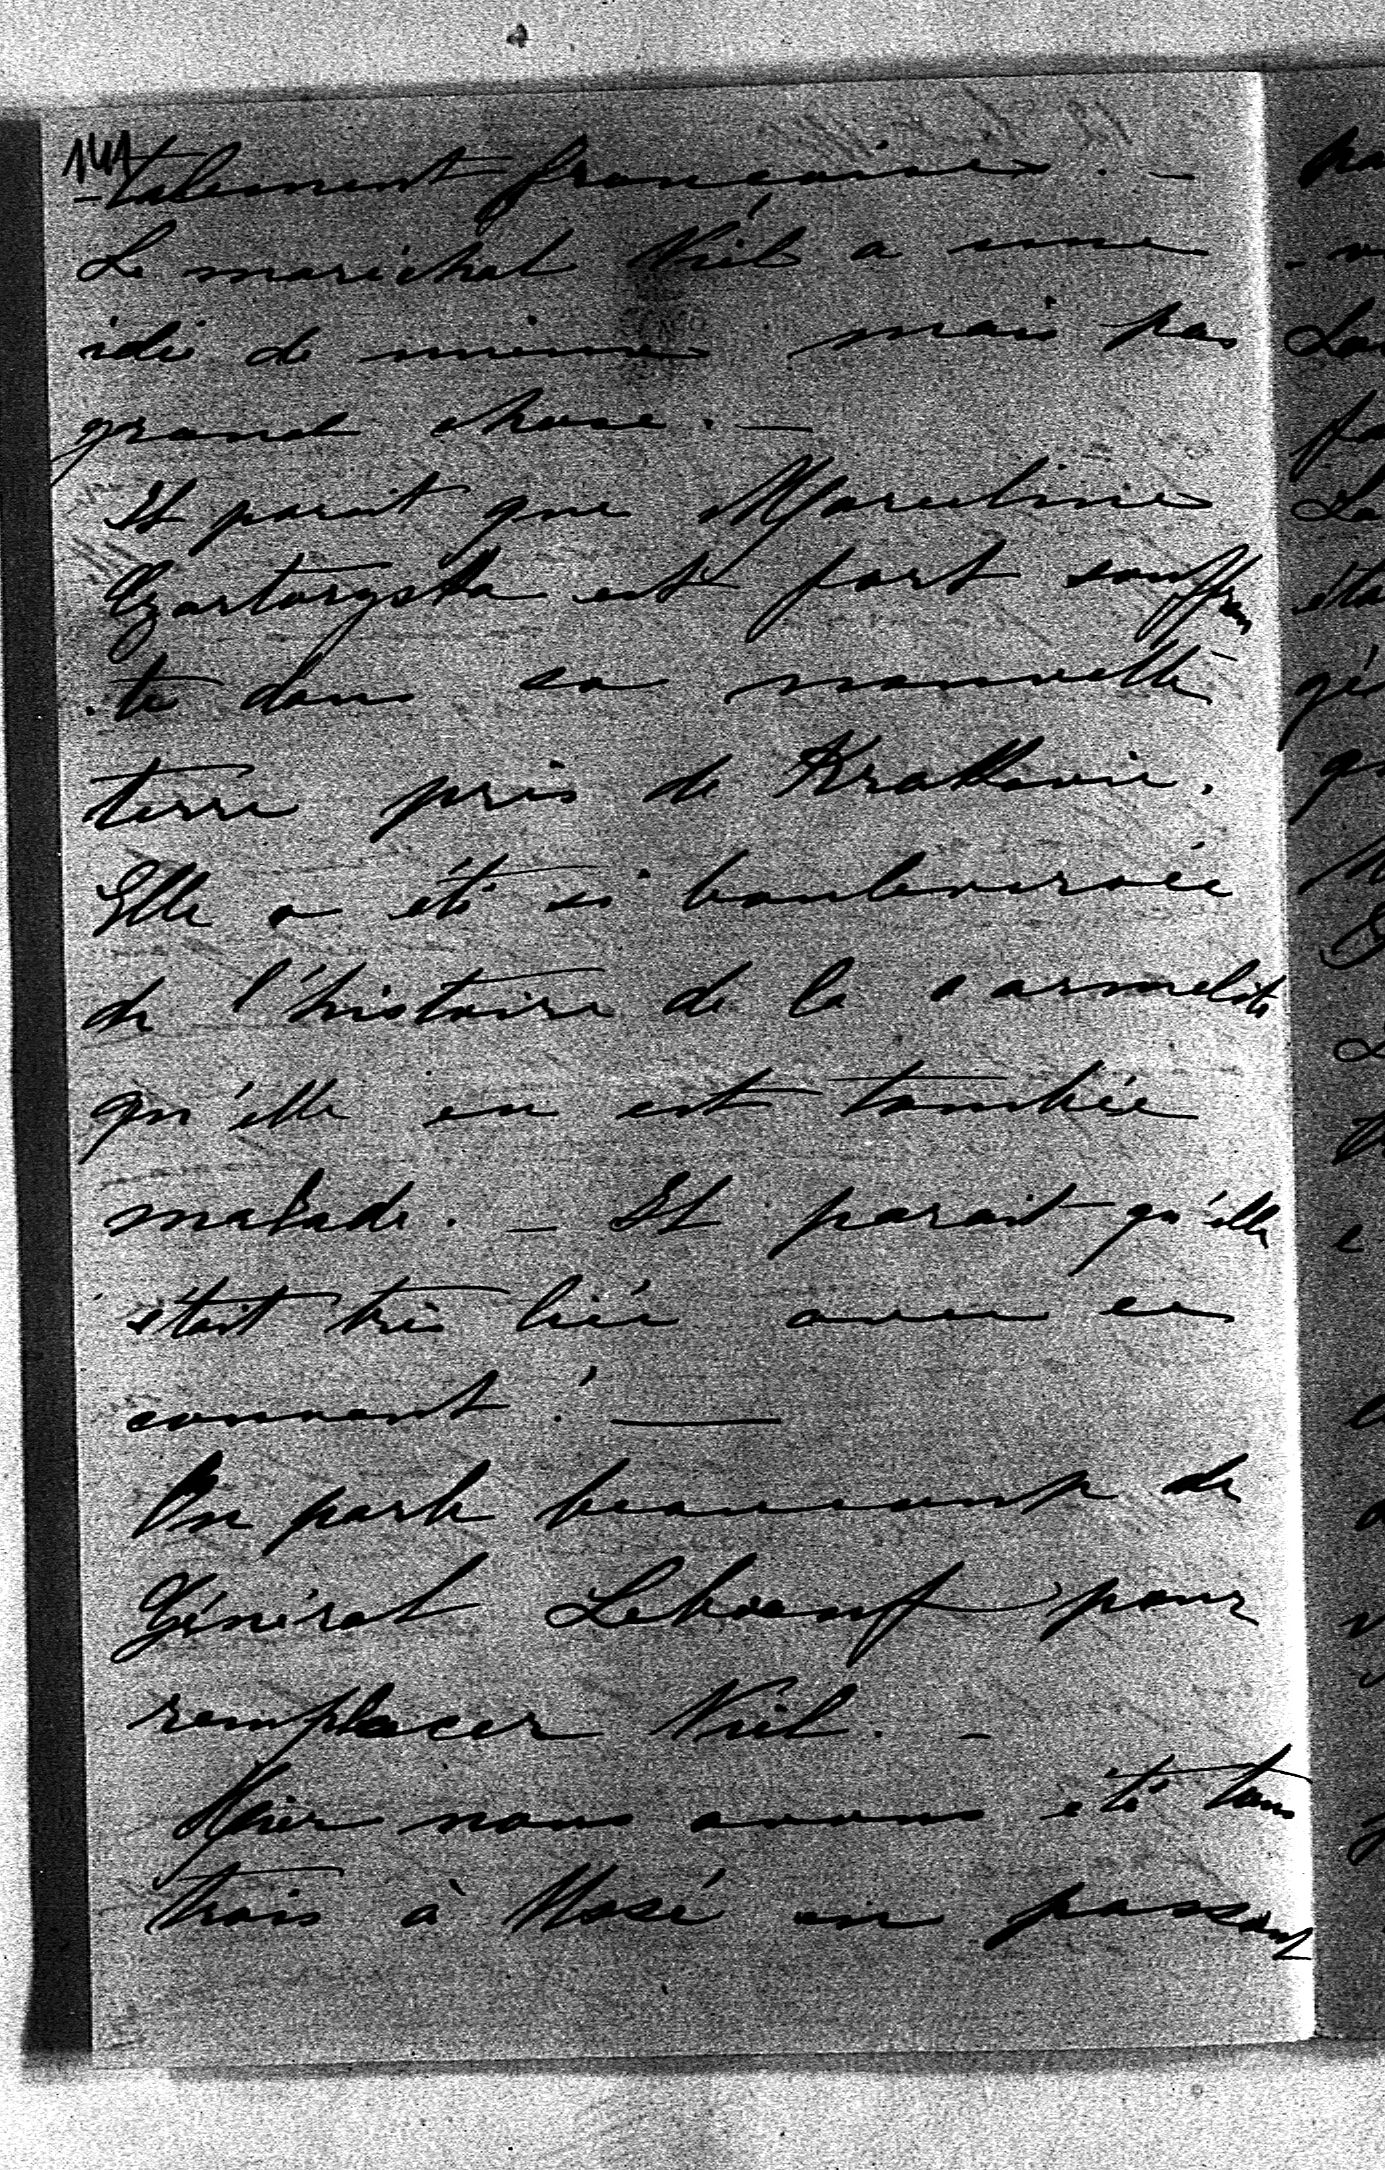 141
-talement françaises. —
Le maréchal Niel a une
idée de mieux, mais pas
grand chose. —
Il parait que Marceline
Czartoryska est fort souffran
-te dans sa nouvelle
terre près de Krakovie.
Elle a été si boulversée
de l'histoire de la carmelite
qu'elle en est tombée
malade. — Il parait qu'elle
était très liée avec ce
couvent! —
On parle beaucoup de
Général Leboeuf pour
remplacer Niel. —
Hier nous avons été tous
trois à Mosé en passant